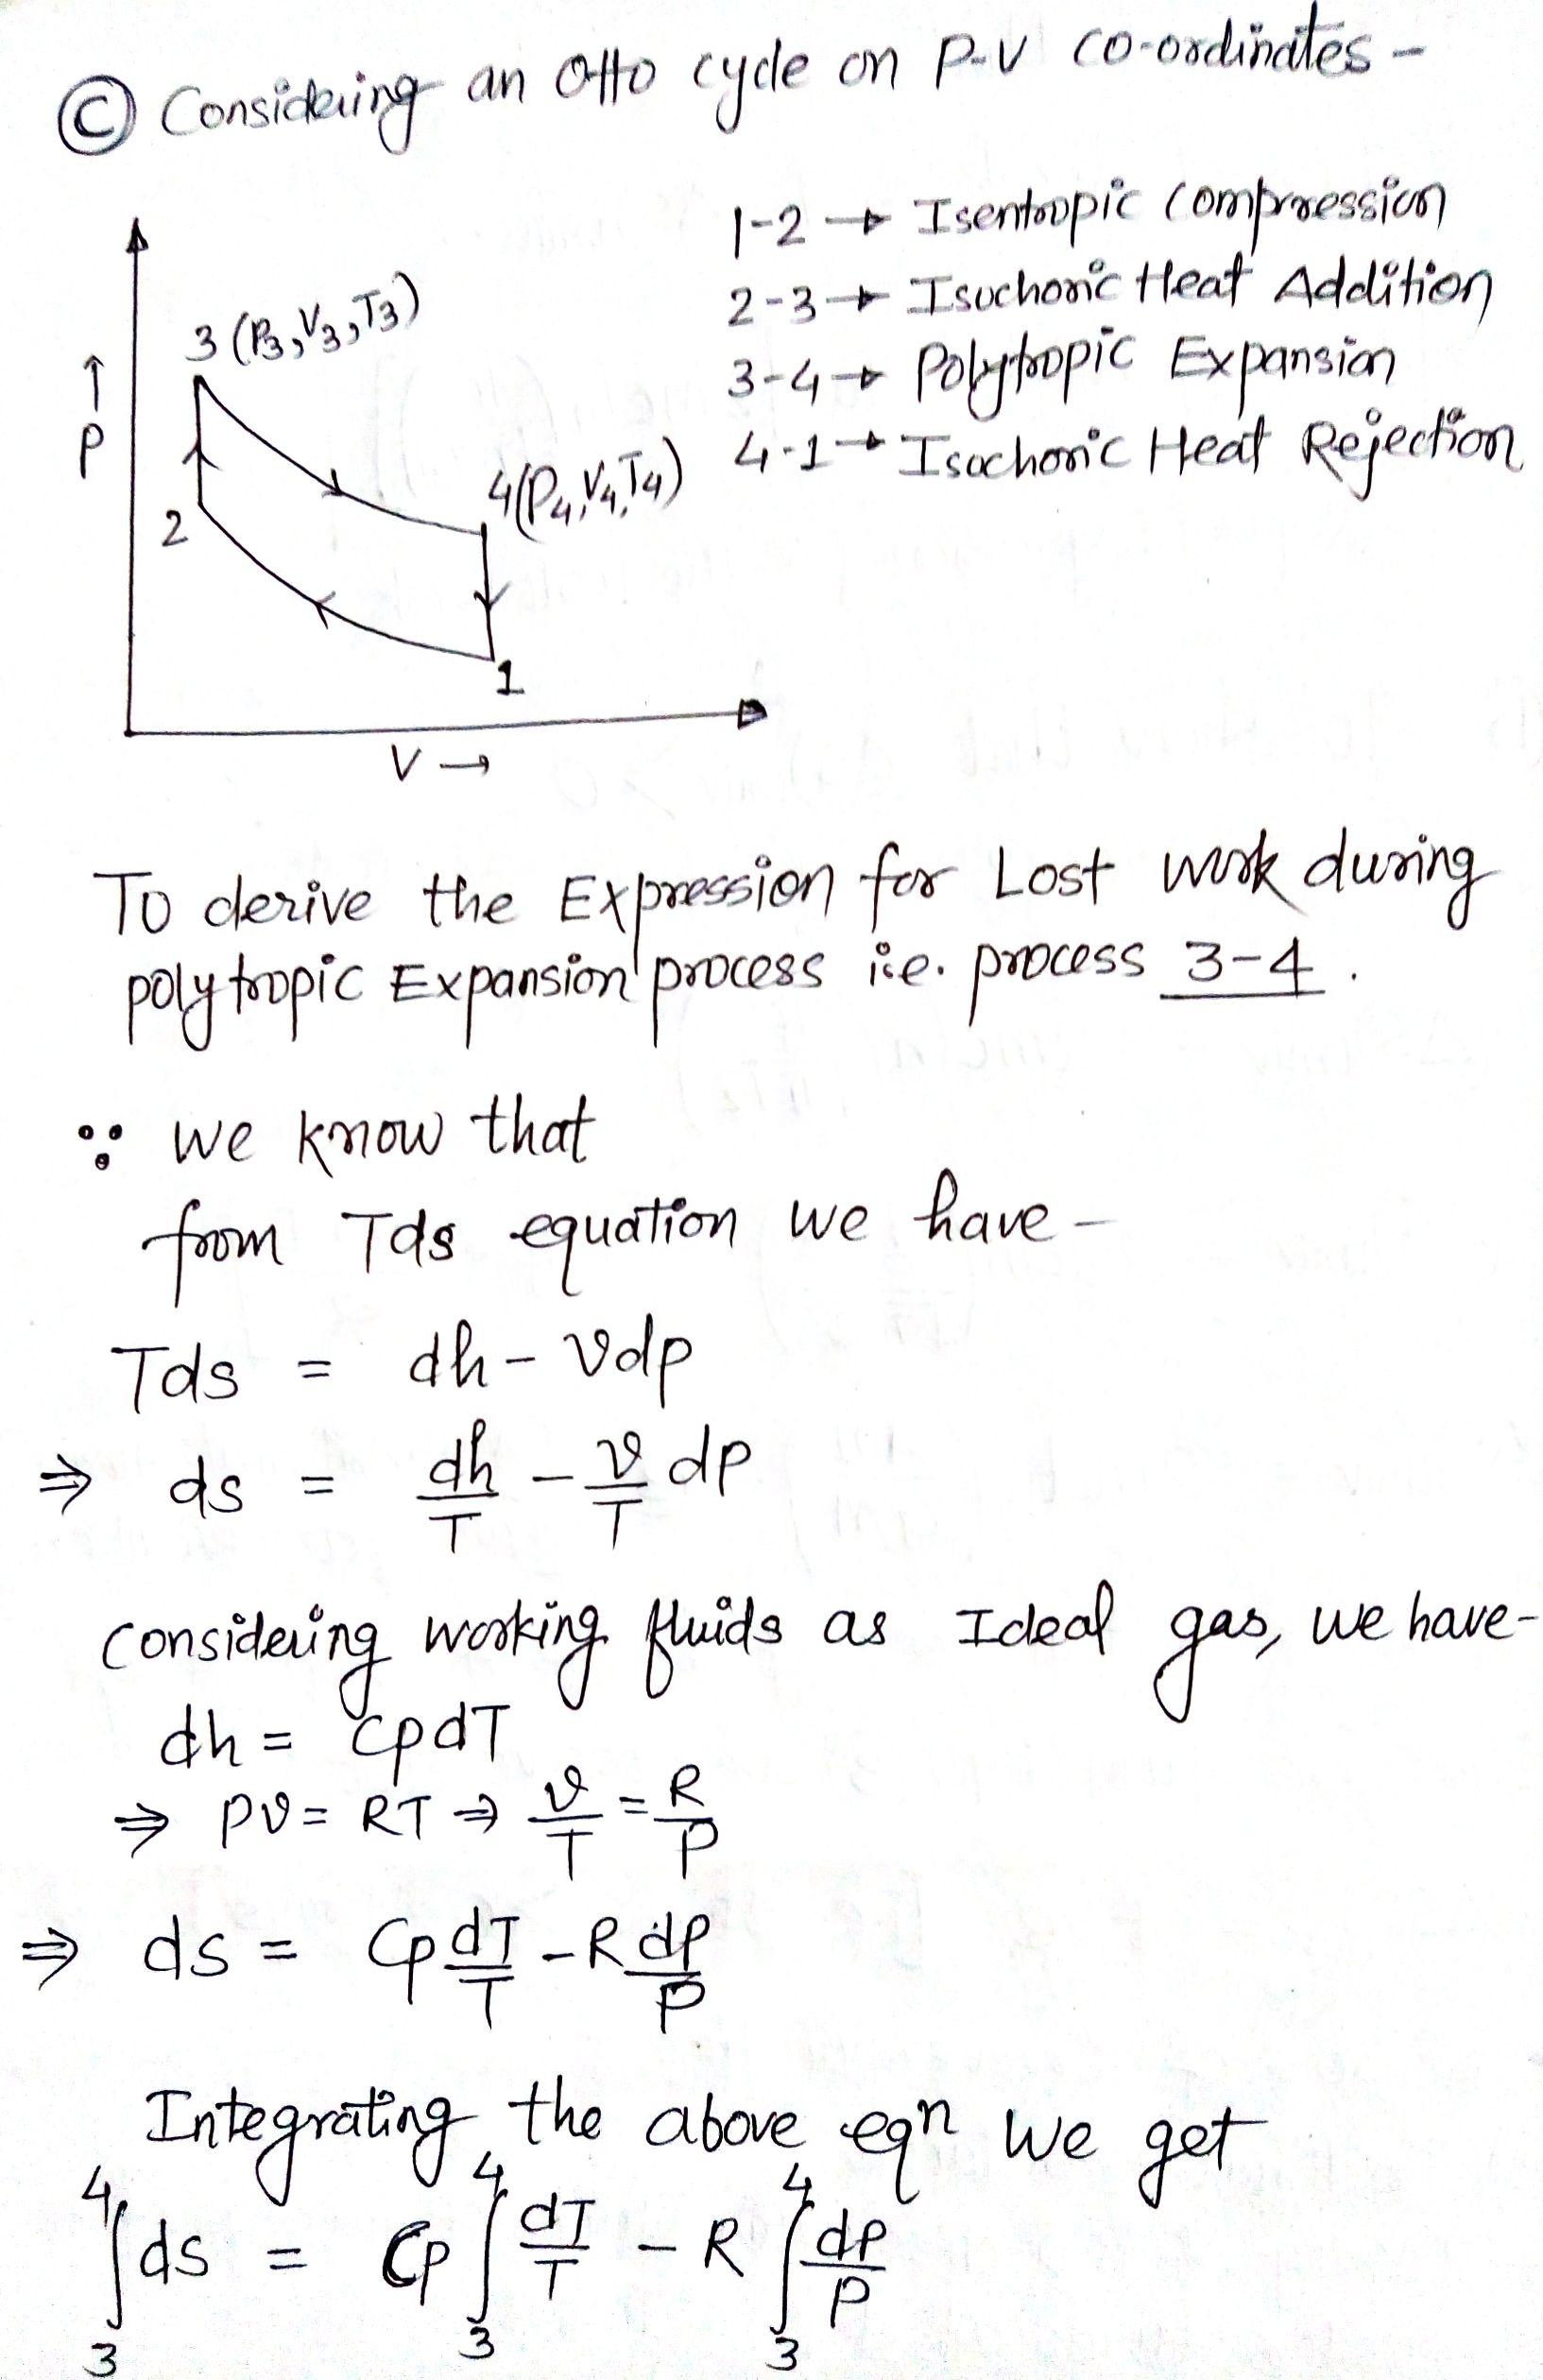 Ⓒ Considering an Otto cycle on P-V co-ordinates -
1-2 → Isentropic Compression
2-3 → Isochoric Heat Addition
3-4 → Polytropic Expansion
4-1 → Isochoric Heat Rejection
3 (P3, V3, T3)
↑
P
4(P4, V4, T4)
2
1
V →
To derive the Expression for Lost work during
polytropic Expansion process i.e. process 3-4.
∵ we know that
from Tds equation we have -
Tds = dh - vdp
⇒ ds = dh/T - v/T dp
Considering working fluids as Ideal gas, we have-
dh = CpdT
⇒ Pv = RT ⇒ v/T = R/P
⇒ ds = Cp dT/T - R dP/P
Integrating the above eqn we get
∫₃⁴ ds = Cp ∫₃⁴ dT/T - R ∫₃⁴ dP/P